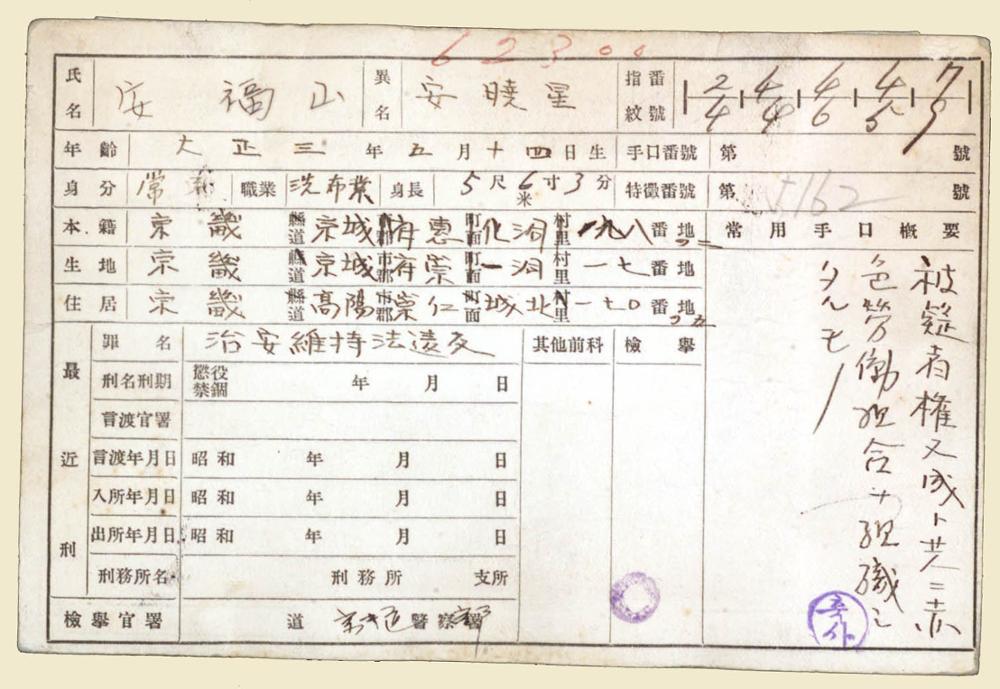 62300
氏名 安福山 異名 安曉星 指紋番號 2/4 4/4 4/6 4/5 7/9
年齡 大正三年五月十四日生 手口番號 第 號
身分 常 職業 洗布業 身長 5尺6寸3分 米 特徵番號 第 5162 號
本籍 京畿 縣道 京城府 市郡 惠化洞 町面 村里 一九八番地ノ二
生地 京畿 縣道 京城府 市郡 崇一洞 町面 村里 一七番地
住居 京畿 縣道 高陽 市郡 崇仁 町面 城北 村里 一七〇番地ノ五
常用手口概要
被疑者權又成ト共ニ赤
色勞働組合ヲ組織シ
タルモノ
最近刑
罪名 治安維持法違反 其他前科 檢擧
刑名刑期 懲役 禁錮 年 月 日
言渡官署
言渡年月日 昭和 年 月 日
入所年月日 昭和 年 月 日
出所年月日 昭和 年 月 日
刑務所名 刑務所 支所
檢擧官署 道 京畿道 警察部 署
복사